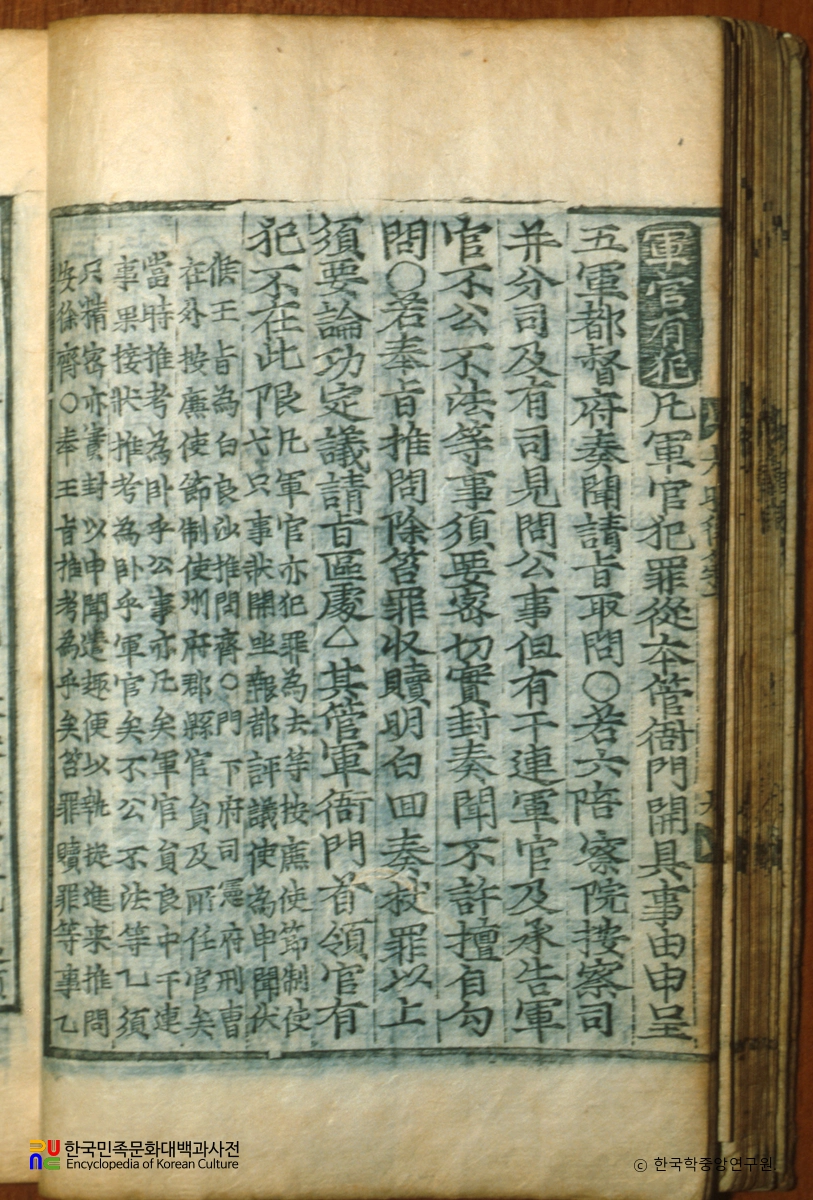 軍官有犯 凡軍官犯罪從本管衙門開具事由申呈
五軍都督府奏聞請旨取問○若六部察院按察司
并分司及有司見問公事但有干連軍官及承告軍
官不公不法等事須要密切實封奏聞不許擅自勾
問○若奉旨推問除笞罪收贖明白回奏杖罪以上
須要論功定議請旨區處△其管軍衙門首領官有
犯不在此限
凡軍官亦犯罪為去等按廉使節制使
下弋只事狀開坐報都評議使為申聞伏
候王旨為白良沙推問齊○門下府司憲府刑曹
在外按廉使節制使州府郡縣官員及所任官矣
當時推考為卧乎公事亦凡矣軍官員良中干連
事果接狀推考為卧乎軍官矣不公不法等乙須
只精密亦實封以申聞遣趣便以執捉進来推問
安徐齊○奉王旨推考為乎矣笞罪贖罪等事乙
한국민족문화대백과사전
Encyclopedia of Korean Culture
ⓒ 한국학중앙연구원